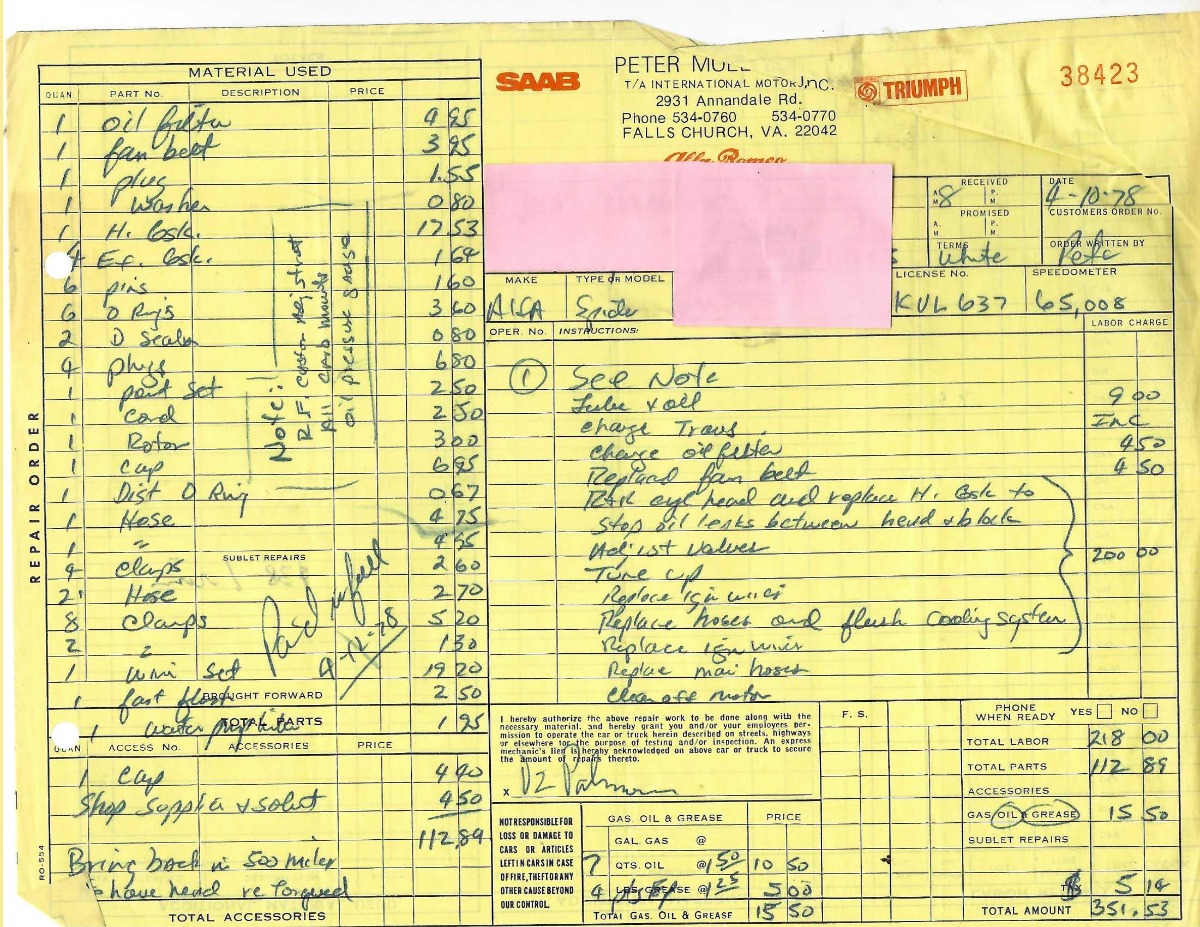 MATERIAL USED
QUAN PART No. DESCRIPTION PRICE
1 oil filter 4 95
1 fan belt 3 95
1 plug 1.55
1 washer 0 80
1 H. Gsk. 17 53
4 Ex. Gsk. 1 64
6 pins 1 60
6 O Rings 3 60
2 D Seals 0 80
4 plugs 6 80
1 point Set 2 50
1 Cond 2 50
1 Rotor 3 00
1 Cap 6 95
1 Dist O Ring 0 67
1 Hose 4 75
1 " 4 95
SUBLET REPAIRS
4 Clamps 2 60
2 Hose 2 70
8 Clamps 5 20
2 " 1 30
1 wire Set 19 20
1 fast flush 2 50
BROUGHT FORWARD
1 water 1 95
TOTAL PARTS
Note:
R.F.
All carb mounts
oil pressure gauge
Paid in full
4-12-78
QUAN ACCESS No. ACCESSORIES PRICE
1 Cap 4 40
Shop supplies & solut 4 50
112.89
Bring back in 500 miles
to have head re torqued
TOTAL ACCESSORIES
REPAIR ORDER
RO-554
SAAB
PETER
T/A INTERNATIONAL MOTOR, Inc.
2931 Annandale Rd.
Phone 534-0760 534-0770
FALLS CHURCH, VA. 22042
Alfa Romeo
TRIUMPH
38423
RECEIVED A. M. 8 P. M.
DATE 4-10-78
PROMISED A. M. P. M.
CUSTOMERS ORDER No.
TERMS White
ORDER WRITTEN BY Pete
MAKE TYPE or MODEL LICENSE No. SPEEDOMETER
Alfa Spider KVL 637 65,008
OPER. No. INSTRUCTIONS: LABOR CHARGE
1 See Note
Lube & oil 9 00
change Trans. INC
Change oil filter 4 50
Replaced fan belt 4 50
R&R cyl head and replace H. Gsk to
stop oil leaks between head & block
Adjust valves 200 00
Tune up
Replace ign wires
Replace hoses and flush cooling system
Replace ign wires
Replace hoses
Clean off motor
I hereby authorize the above repair work to be done along with the
necessary material, and hereby grant you and/or your employees per-
mission to operate the car or truck herein described on streets, highways
or elsewhere for the purpose of testing and/or inspection. An express
mechanic's lien is hereby acknowledged on above car or truck to secure
the amount of repairs thereto.
x
F. S.
PHONE WHEN READY YES NO
TOTAL LABOR 218 00
TOTAL PARTS 112 89
ACCESSORIES
GAS, OIL & GREASE 15 50
SUBLET REPAIRS
TAX $ 5 14
TOTAL AMOUNT 351.53
NOT RESPONSIBLE FOR
LOSS OR DAMAGE TO
CARS OR ARTICLES
LEFT IN CARS IN CASE
OF FIRE, THEFT OR ANY
OTHER CAUSE BEYOND
OUR CONTROL.
GAS, OIL & GREASE PRICE
GAL. GAS @
7 QTS. OIL @ 1.50 10 50
4 LBS. GREASE @ 1.25 5 00
TOTAL GAS, OIL & GREASE 15 50